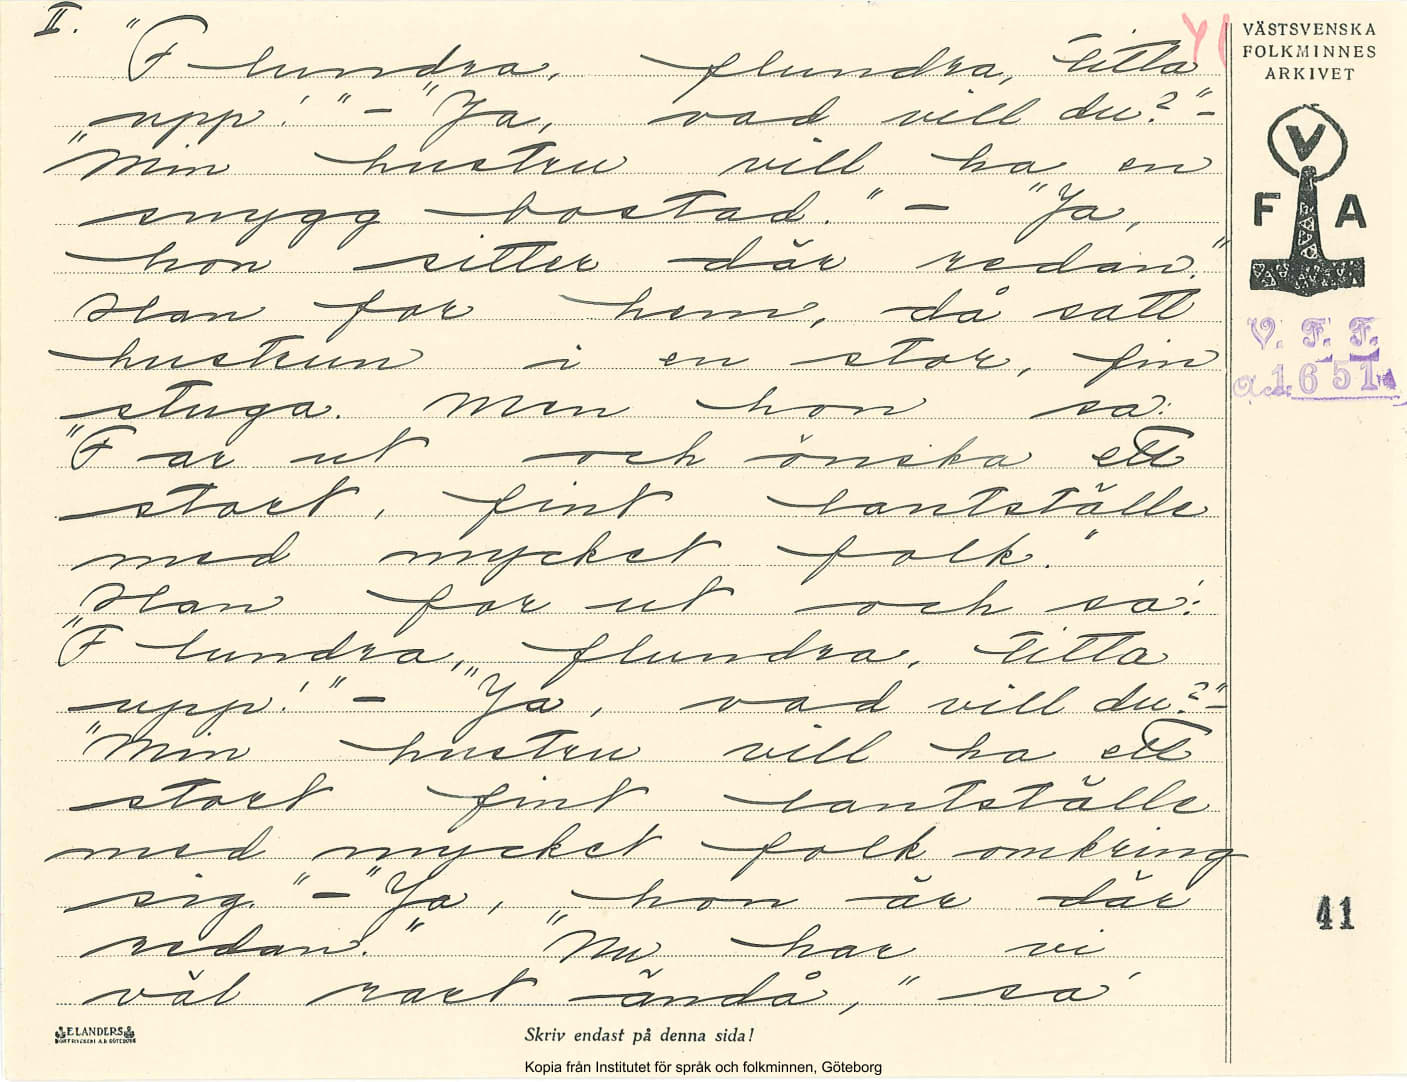 II.
"Flundra, flundra, titta
upp!" – "Ja, vad vill du?" –
"Min hustru vill ha en
snygg bostad." – "Ja,
hon sitter där redan."
Han for hem, då satt
hustrun i en stor, fin
stuga. Men hon sa:
"Far ut och önska ett
stort, fint lantställe
med mycket folk."
Han for ut och sa:
"Flundra, flundra, titta
upp!" – "Ja, vad vill du?" –
"Min hustru vill ha ett
stort fint lantställe
med mycket folk omkring
sig." – "Ja, hon är där
redan." "Nu har vi
väl rart ändå," sa
VÄSTSVENSKA
FOLKMINNES
ARKIVET
V
F A
V. F. F.
1651
41
ELANDERS
Skriv endast på denna sida!
Kopia från Institutet för språk och folkminnen, Göteborg